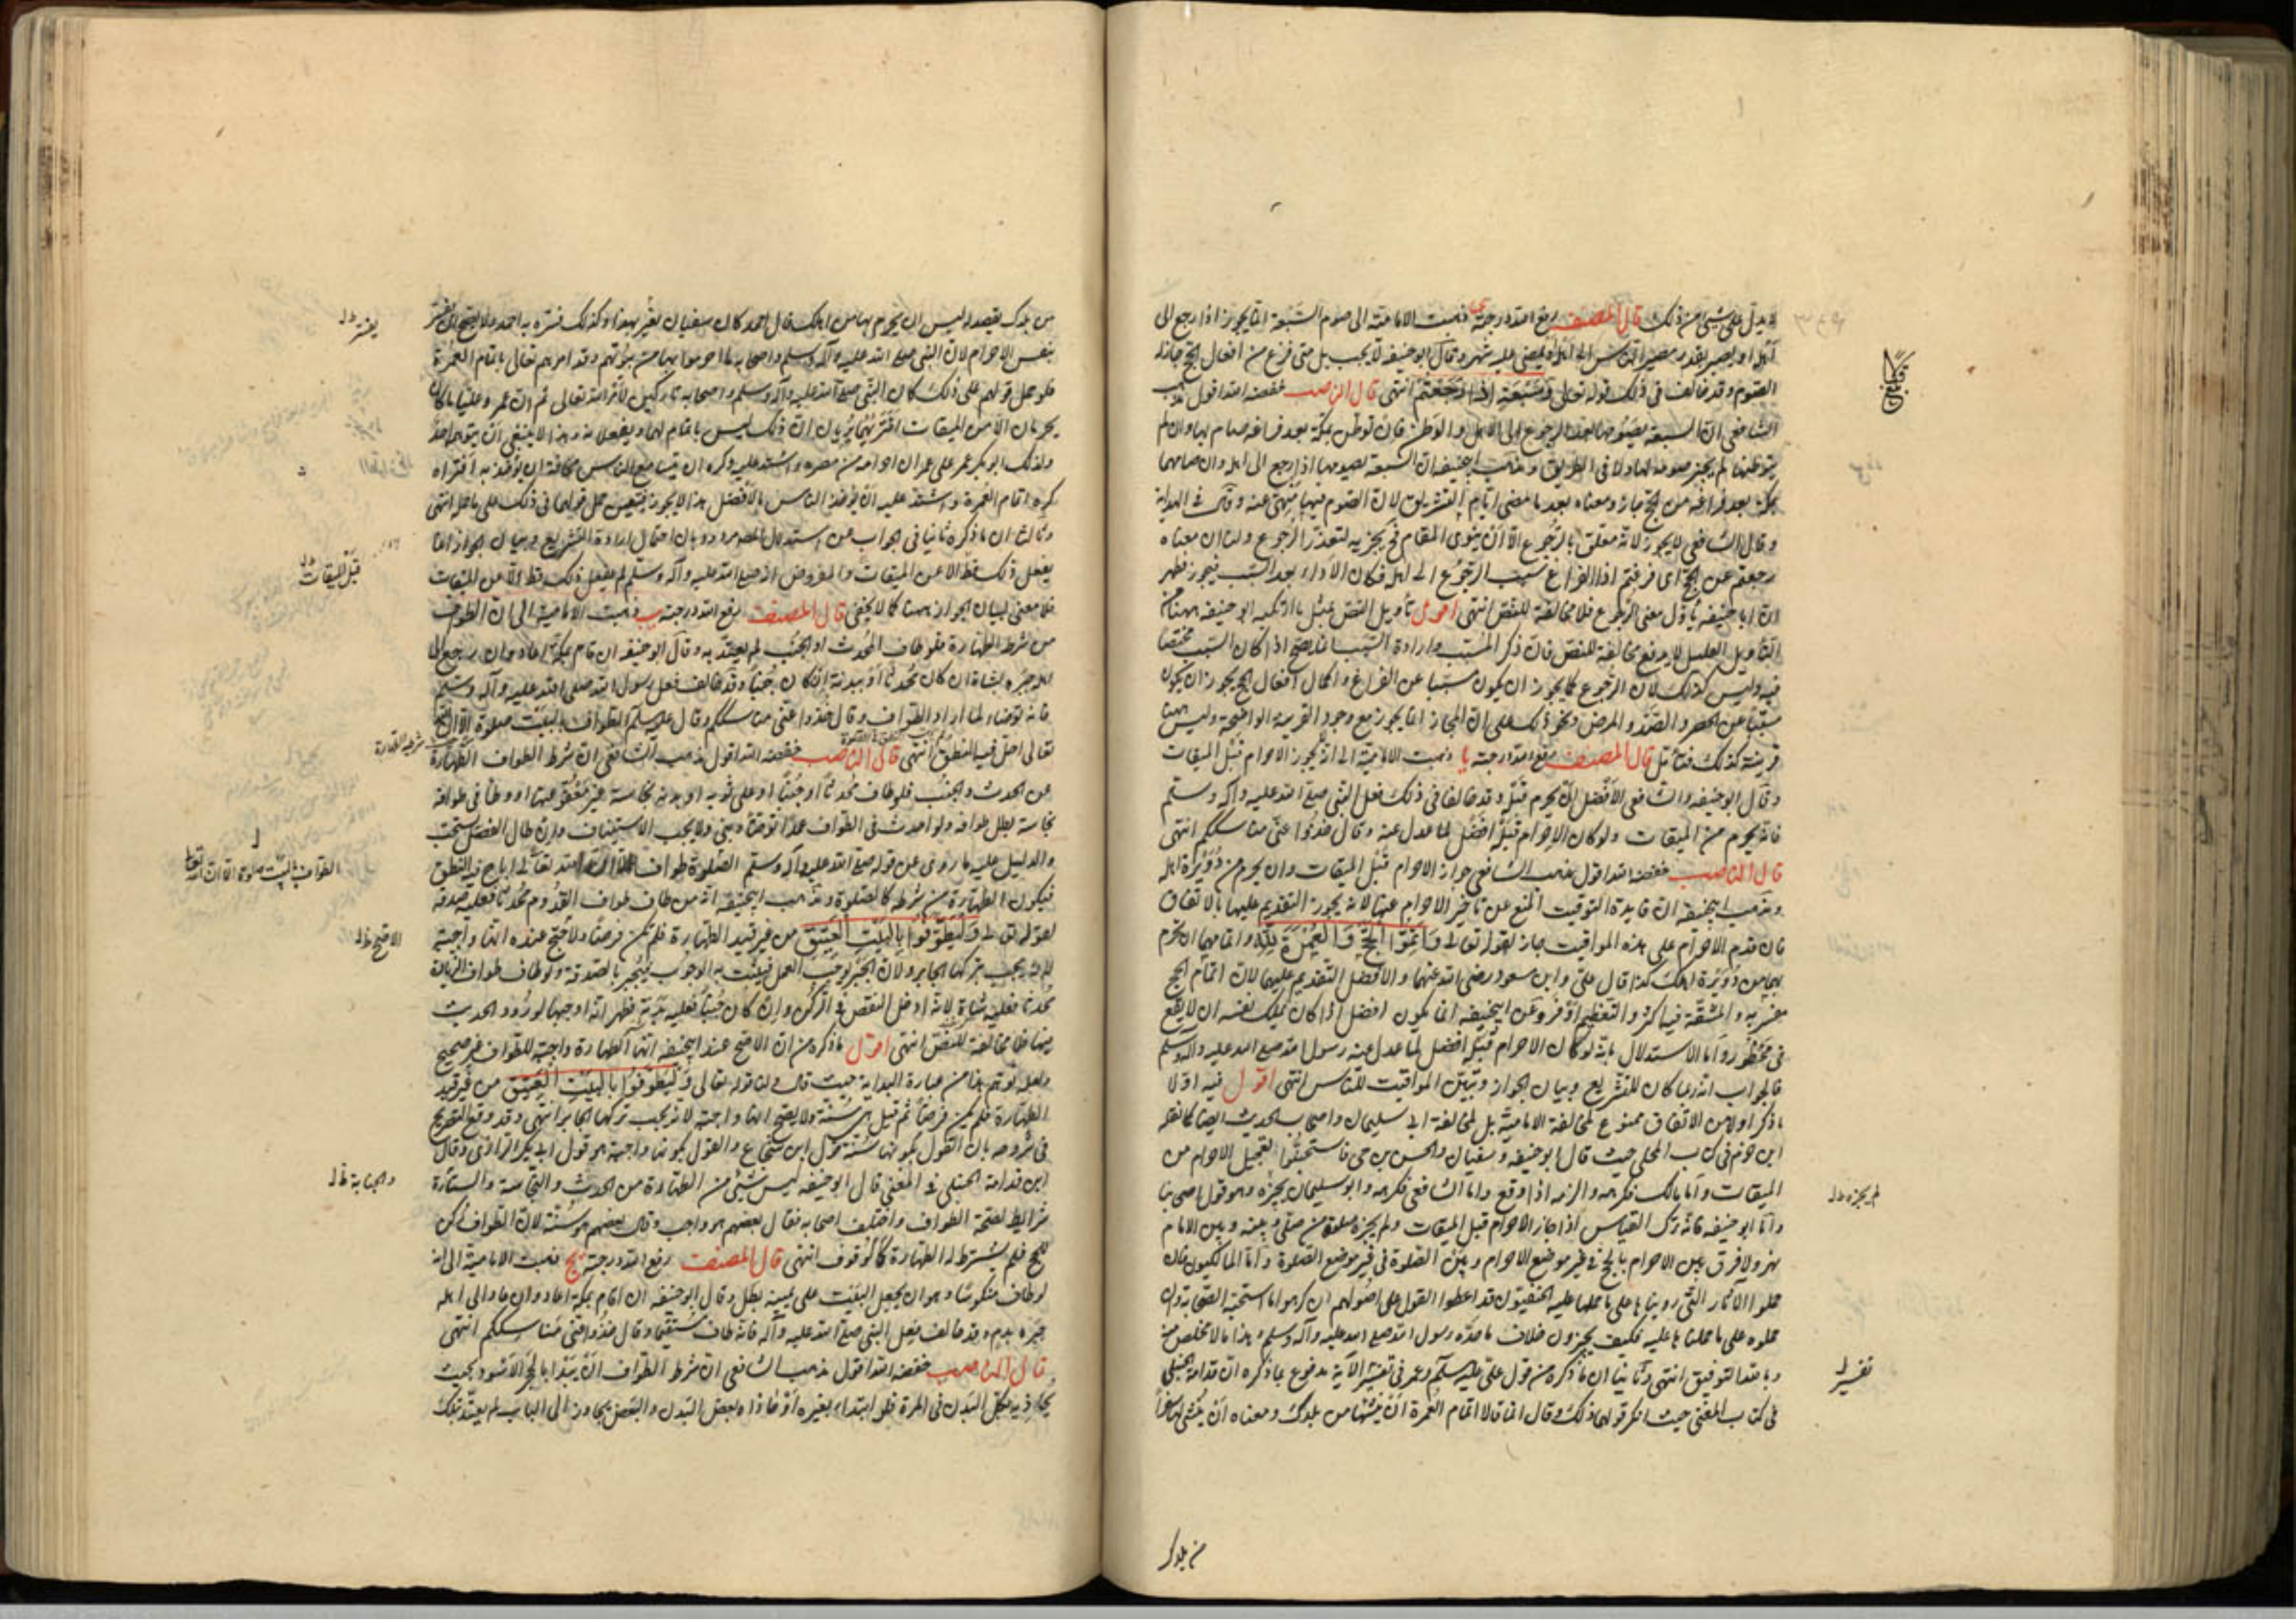 لا يدل على شيء من ذلك قال المصنف رفع الله درجته ى ذهبت الامامية الى ان صوم السبعة انما يجوز اذا رجع الى
اهله او يصير بقدر مصير الناس الى اهله او يمضي عليه شهر وقال ابو حنيفة لا يجب بل متى فرغ من افعال الحج جاز له
الصوم وقد خالف في ذلك قوله تعالى وسبعة اذا رجعتم انتهى قال الناصب خفضه الله اقول مذهب
الشافعي ان السبعة يصومها بعد الرجوع الى الاهل والوطن فان توطن بمكة بعد فراغه صام بها وان لم
يتوطنها لم يجز صومه بها ولا في الطريق ومذهب ابي حنيفة ان السبعة يصومها اذا رجع الى اهله وان صامها
بمكة بعد فراغه من الحج جاز ومعناه بعد مضي ايام التشريق لان الصوم فيها منهى عنه وقال في الهداية
وقال الشافعي لا يجوز لانه معلق بالرجوع الا ان ينوي المقام فح يجزيه لتعذر الرجوع ولنا ان معناه
رجعتم عن الحج اى فرغتم اذ الفراغ سبب الرجوع الى اهله فكان الاداء بعد السبب فيجوز فظهر
ان ابا حنيفة يأول معنى الرجوع فلا مخالفة للنص انتهى اقول تأويل النص بمثل ما ارتكبه ابو حنيفة ههنا من
التأويل العليل لا يدفع مخالفة للنص فان ذكر المسبب وارادة السبب انما يصح اذا كان السبب مختصا
فيه وليس كذلك لان الرجوع كما يجوز ان يكون مسببا عن الفراغ واكمال افعال الحج يجوز ان يكون
مسببا عن الحصر والصد والمرض ونحو ذلك على ان المجاز انما يجوز مع وجود القرينة الواضحة وليس ههنا
قرينة كذلك فتأمل قال المصنف رفع الله درجته يا ذهبت الامامية الى انه لا يجوز الاحرام قبل الميقات
وقال ابو حنيفة والشافعي الافضل ان يحرم قبله وقد خالفا في ذلك فعل النبي صلى الله عليه وآله وسلم
فانه يحرم من الميقات ولو كان الاحرام قبله افضل لما عدل عنه وقال خذوا عني مناسككم انتهى
قال الناصب خفضه الله اقول مذهب الشافعي جواز الاحرام قبل الميقات وان يحرم من دويرة اهله
ومذهب ابي حنيفة ان فايدة التوقيت المنع عن تأخير الاحرام عنها لانه يجوز التقديم عليها بالاتفاق
فان قدم الاحرام على هذه المواقيت جاز لقوله تعالى واتموا الحج والعمرة لله واتمامهما ان يحرم
بهما من دويرة اهلك كذا قال علي وابن مسعود رضي الله عنهما والافضل التقديم عليها لان اتمام الحج
مفسر به والمشقة فيه اكثر والتعظيم اوفر وعن ابي حنيفة انما يكون افضل اذا كان يملك نفسه ان لا يقع
في محظور واما الاستدلال بانه لو كان الاحرام قبله افضل لما عدل عنه رسول الله صلى الله عليه وآله وسلم
فالجواب انه ربما كان للتشريع وبيان الجواز وتبيين المواقيت للناس انتهى اقول فيه اولا
ما ذكر اولا من الاتفاق ممنوع لمخالفة الامامية بل لمخالفة ابي سليمان واصحاب الحديث ايضا كما نقله
ابن حزم في كتاب المحلى حيث قال ابو حنيفة وسفيان والحسن بن حي فاستحبوا تعجيل الاحرام من
الميقات واما مالك فكرهه والزمه اذا وقع واما الشافعي فكرهه وابو سليمان يجزه وهو قول اصحابنا
واما ابو حنيفة فانه ترك القياس اذ اجاز الاحرام قبل الميقات ولم يجز صلوة من صلى وبينه وبين الامام
نهر ولا فرق بين الاحرام بالحج في غير موضع الاحرام وبين الصلوة في غير موضع الصلوة واما المالكيون فان
حملوا الآثار التي روينا ها على ما حملها عليه الحنفيون فقد اعطوا القول على اصولهم ان كرهوا ما استحبه الصحابة وان
حملوه على ما حملنا ها عليه فكيف يجيزون خلاف ما حده رسول الله صلى الله عليه وآله وسلم وهذا ما لا مخلص منه
وبالله التوفيق انتهى وثانيا ان ما ذكره من قول علي عليه السلم وعمر في تفسير الآية مدفوع بما ذكره ابن قدامة الحنبلي
في كتاب المغني حيث انكر قولهما ذلك وقال انما قالا اتمام العمرة ان ينشئها من بلدك ومعناه ان ينشئ لها سفرا
لم يجزه ظ
تفسير
من بلدك
من بلدك يقصد له ليس ان يحرم بها من اهلك قال احمد كان سفيان يفسره بهذا وكذلك فسره به احمد ولا يصح ان يفسر
بنفس الاحرام لان النبي صلى الله عليه وآله وسلم واصحابه ما احرموا بها من بيوتهم وقد امرهم الله تعالى باتمام العمرة
فلو حمل قولهم على ذلك كان النبي صلى الله عليه وآله وسلم واصحابه تاركين لامر الله تعالى ثم ان عمر وعليا ما كانا
يحرمان الا من الميقات افتراهما يريان ان ذلك ليس باتمام لها ويفعلانه وهذا لا ينبغي ان يتوهم احد
ولذلك انكر عمر على عمران احرامه من مصره واشتد عليه وكره ان يتسامع الناس مخافة ان يؤخذ به افتراه
كره اتمام العمرة واشتد عليه ان يأخذ الناس بالافضل هذا لا يجوز فيتعين حمل قولهما في ذلك على ما حمل انتهى
وثالثا ان ما ذكره ثانيا في الجواب عن استدلال المص مردود بان احتمال ارادة التشريع وبيان الجواز انما
يعقل ذلك فظ الا عن الميقات والمفروض انه صلى الله عليه وآله وسلم لم يفعل ذلك قط الا من الميقات
فلا معنى لبيان الجواز ههنا كما لا يخفى قال المصنف رفع الله درجته يب ذهبت الامامية الى ان الطواف
من شرطه الطهارة فلو طاف المحدث او الجنب لم يعتد به وقال ابو حنيفة ان قام بمكة اعاد وان رجع الى
اهله جبره بشاة ان كان محدثا او ببدنة ان كان جنبا وقد خالف فعل رسول الله صلى الله عليه وآله وسلم
فانه توضأ لما اراد الطواف وقال خذوا عني مناسككم وقال عليه السلم الطواف بالبيت صلوة الا ان الله
تعالى احل فيه النطق انتهى قال الناصب خفضه الله اقول مذهب الشافعي ان شرط الطواف الطهارة
عن الحدث والجنب فلو طاف محدثا او جنبا او على ثوبه او بدنه نجاسة غير معفو عنها او وطأ في طوافه
نجاسة بطل طوافه ولو احدث في الطواف عمدا توضأ وبنى ولا يجب الاستيناف وان طال الفصل يستحب
والدليل عليه ما روى عن قوله صلى الله عليه وآله وسلم الصلوة طواف الا ان الله تعالى اباح فيه النطق
فيكون الطهارة من شرطه كالصلوة ومذهب ابي حنيفة انه من طاف طواف القدوم محدثا فعليه صدقة
لقوله تعالى وليطوفوا بالبيت العتيق من غير قيد الطهارة فلم تكن فرضا والاصح عنده انها واجبة
لانه يجب بتركها الجابر ولان الخبر يوجب العمل فيثبت به الوجوب فيجبر بالصدقة ولو طاف طواف الزيارة
محدثا فعليه شاة لانه ادخل النقص في الركن وان كان جنبا فعليه بدنة فظهر انه اوجبها لورود الحديث
فيها فلا مخالفة للنص انتهى اقول ما ذكره من ان الاصح عند ابي حنيفة انها الطهارة واجبة للطواف غير صحيح
ولعله توهم هذا من عبارة الهداية حيث قال ولنا قوله تعالى وليطوفوا بالبيت العتيق من غير قيد
الطهارة فلم تكن فرضا ثم قيل هي سنة والاصح انها واجبة لانه يجب بتركها الجابر انتهى وقد وقع التصريح
في شروحه بان القول بكونها سنة قول ابن شجاع والقول بكونها واجبة هو قول ابي بكر الرازى وقال
ابن قدامة الحنبلي في المغني قال ابو حنيفة ليس شيء من الطهارة من الحدث والنجاسة والستارة
شرايط لصحة الطواف واختلف اصحابه فقال بعضهم هو واجب وقال بعضهم هو سنة لان الطواف ركن
للحج فلم يشترط له الطهارة كالوقوف انتهى قال المصنف رفع الله درجته يج ذهبت الامامية الى انه
لو طاف منكوسا وهو ان يجعل البيت على يمينه بطل وقال ابو حنيفة ان اقام بمكة اعاد وان عاد الى اهله
جبره بدم وقد خالف فعل النبي صلى الله عليه وآله فانه طاف مستقيما وقال خذوا عني مناسككم انتهى
قال الناصب خفضه الله اقول مذهب الشافعي ان شرط الطواف ان يبدأ بالحجر الاسود بحيث
يحاذيه بكل البدن في المرة فلو ابتدأ بغيره او حاذاه ببعض البدن والبعض يجاوز الى الباب لم يعتد بذلك
يفسر ظ
قبل الميقات ظ
شرطية الطهارة
الطواف بالبيت صلوة الا ان الله تعالى
الاصح ظ
والجنابة ظ